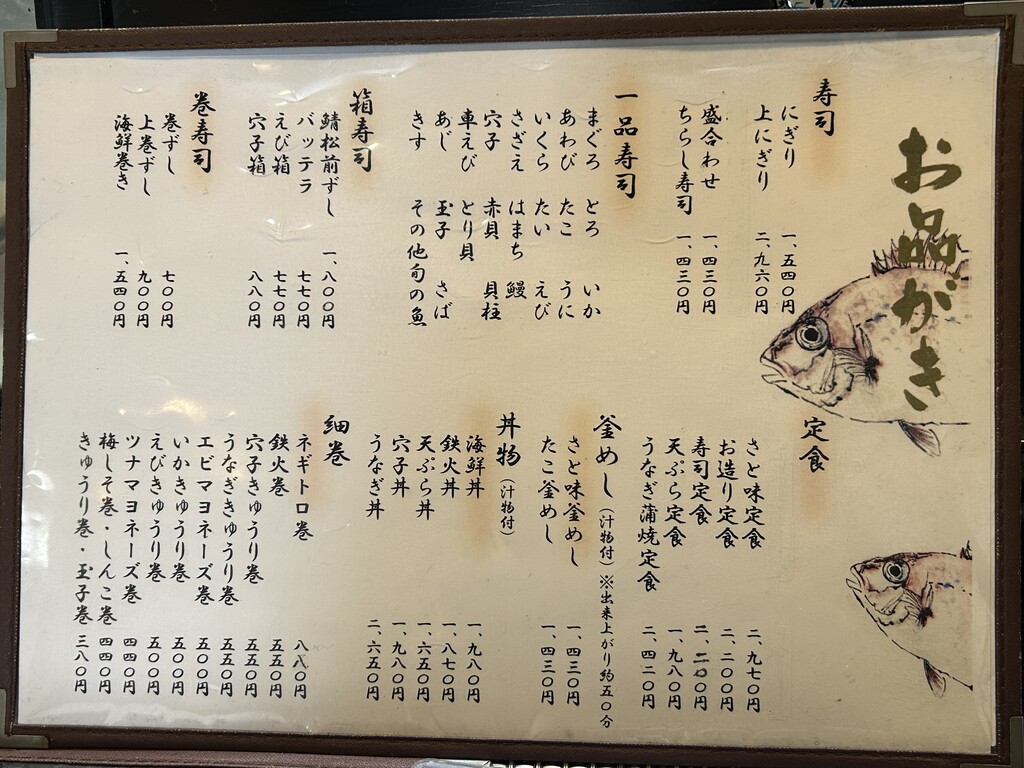 お品がき
寿司
にぎり 一、五四〇円
上にぎり 二、九六〇円
盛合わせ 一、四三〇円
ちらし寿司 一、四三〇円
一品寿司
まぐろ とろ いか
あわび たこ うに
いくら たい えび
さざえ はまち 鰻
穴子 赤貝 貝柱
車えび とり貝
あじ 玉子 さば
きす その他旬の魚
箱寿司
鯖松前ずし 一、八〇〇円
バッテラ 七七〇円
えび箱 七七〇円
穴子箱 八八〇円
巻寿司
巻ずし 七〇〇円
上巻ずし 九〇〇円
海鮮巻き 一、五四〇円
定食
さと味定食 二、九七〇円
お造り定食 二、二〇〇円
寿司定食 二、二〇〇円
天ぷら定食 一、九八〇円
うなぎ蒲焼定食 二、四二〇円
釜めし（汁物付）※出来上がり約五〇分
さと味釜めし 一、四三〇円
たこ釜めし 一、四三〇円
丼物（汁物付）
海鮮丼 一、九八〇円
鉄火丼 一、八七〇円
天ぷら丼 一、六五〇円
穴子丼 一、九八〇円
うなぎ丼 二、六五〇円
細巻
ネギトロ巻 八八〇円
鉄火巻 五五〇円
穴子きゅうり巻 五五〇円
うなぎきゅうり巻 五五〇円
エビマヨネーズ巻 五五〇円
いかきゅうり巻 五〇〇円
えびきゅうり巻 五〇〇円
ツナマヨネーズ巻 四四〇円
梅しそ巻・しんこ巻 四四〇円
きゅうり巻・玉子巻 三八〇円